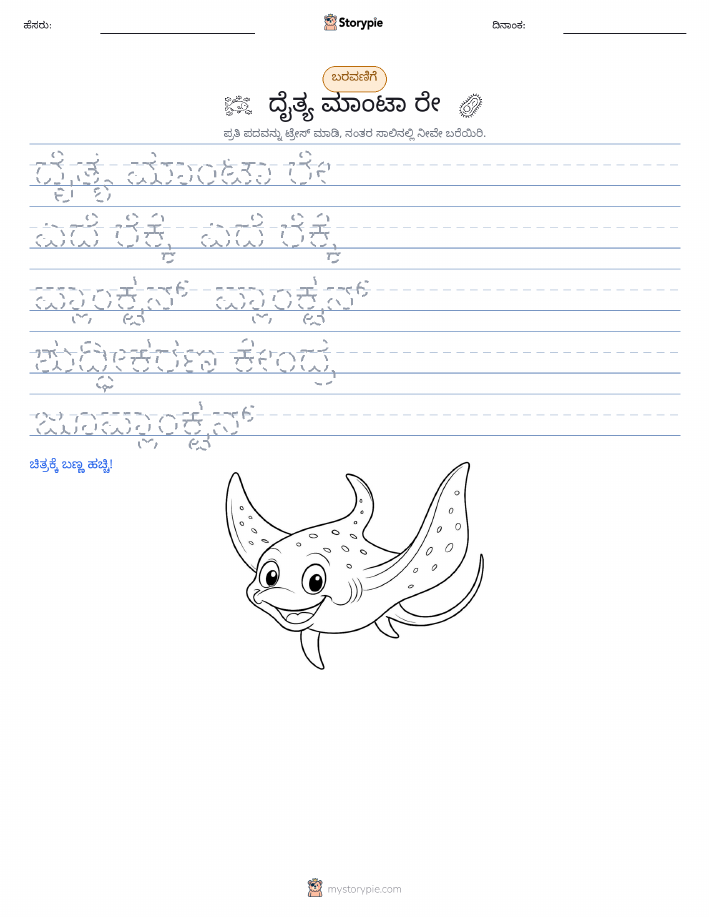 ಹೆಸರು: Storypie ದಿನಾಂಕ:
ಬರವಣಿಗೆ
ದೈತ್ಯ ಮಾಂಟಾ ರೇ
ಪ್ರತಿ ಪದವನ್ನು ಟ್ರೇಸ್ ಮಾಡಿ, ನಂತರ ಸಾಲಿನಲ್ಲಿ ನೀವೇ ಬರೆಯಿರಿ.
ದೈತ್ಯ ಮಾಂಟಾ ರೇ
ಎದೆ ರೆಕ್ಕೆ ಎದೆ ರೆಕ್ಕೆ
ಪ್ಲಾಂಕ್ಟನ್ ಪ್ಲಾಂಕ್ಟನ್
ಶುದ್ಧೀಕರಣ ಕೇಂದ್ರ
ಜೂಪ್ಲಾಂಕ್ಟನ್
ಚಿತ್ರಕ್ಕೆ ಬಣ್ಣ ಹಚ್ಚಿ!
mystorypie.com